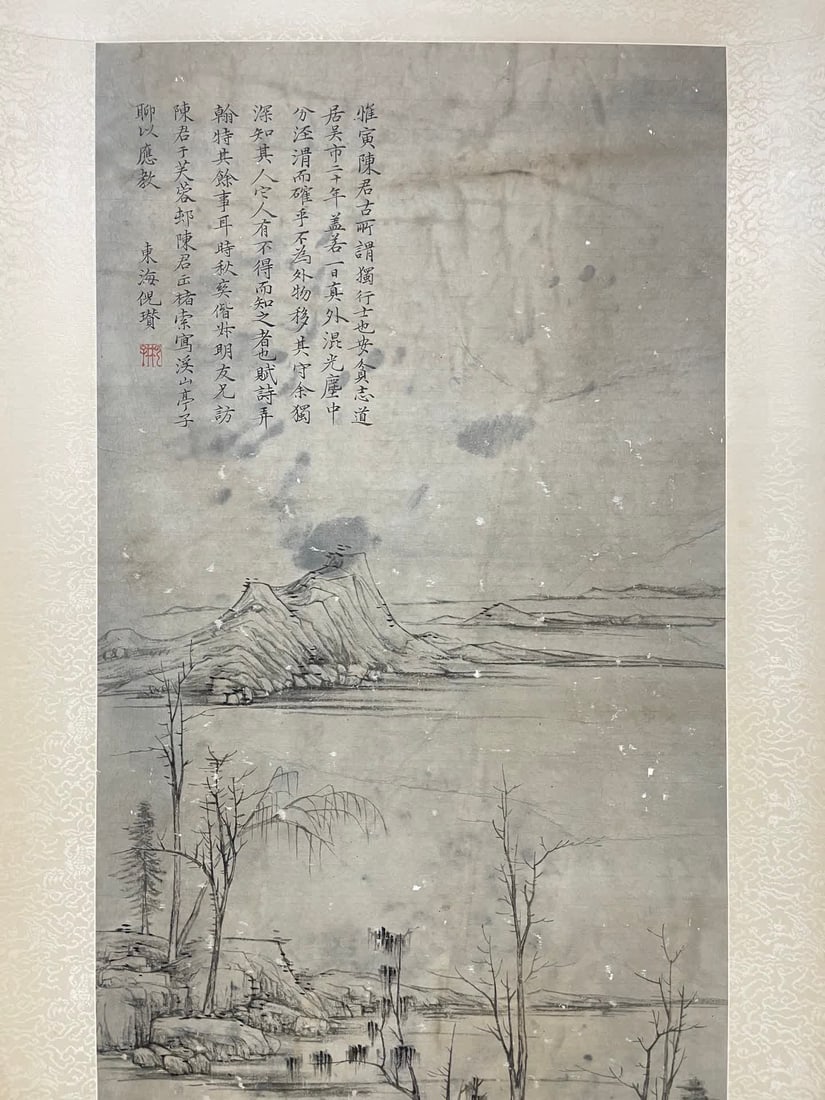 惟寅陳君古所謂獨行士也安貧志道
居吴市二十年盖若一日真外混光塵中
分涇渭而確乎不為外物移其守余獨
深知其人它人有不得而知之者也賦詩弄
翰特其餘事耳時秋爽偕好明友尤訪
陳君于芙蓉邨陳君出楮索寫溪山亭子
聊以應教
東海倪瓉